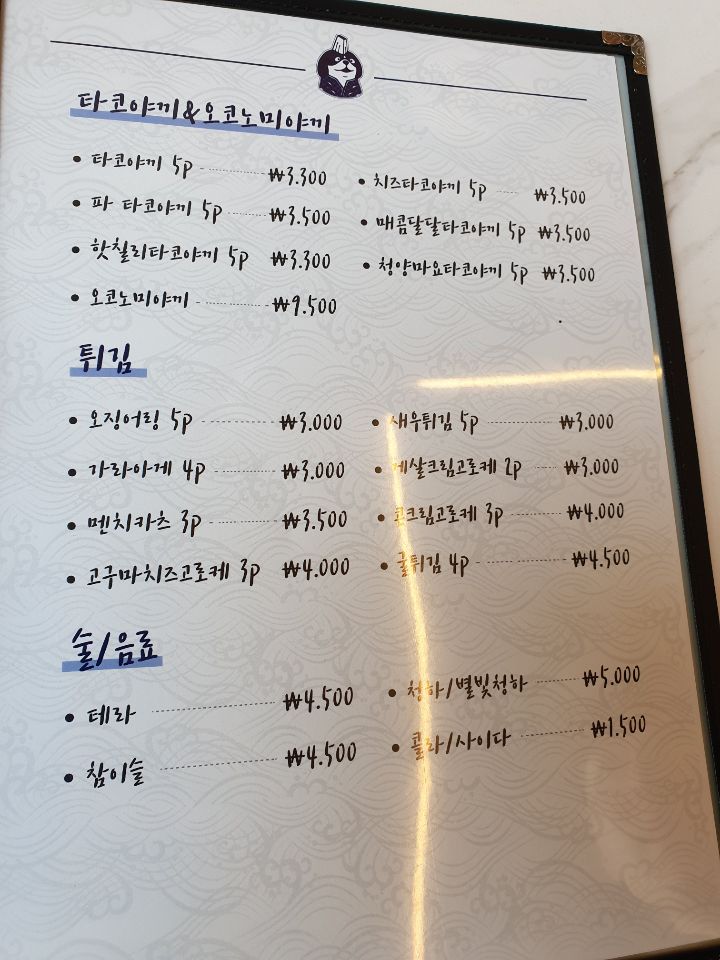 타코야끼&오코노미야끼
타코야끼 5p ₩3.300
파 타코야끼 5p ₩3.500
핫칠리타코야끼 5p ₩3.300
오코노미야끼 ₩9.500
치즈타코야끼 5p ₩3.500
매콤달달타코야끼 5p ₩3.500
청양마요타코야끼 5p ₩3.500
튀김
오징어링 5p ₩3.000
가라아게 4p ₩3.000
멘치카츠 3p ₩3.500
고구마치즈고로케 3p ₩4.000
새우튀김 5p ₩3.000
게살크림고로케 2p ₩3.000
콘크림고로케 3p ₩4.000
굴튀김 4p ₩4.500
술/음료
테라 ₩4.500
참이슬 ₩4.500
청하/별빛청하 ₩5.000
콜라/사이다 ₩1.500